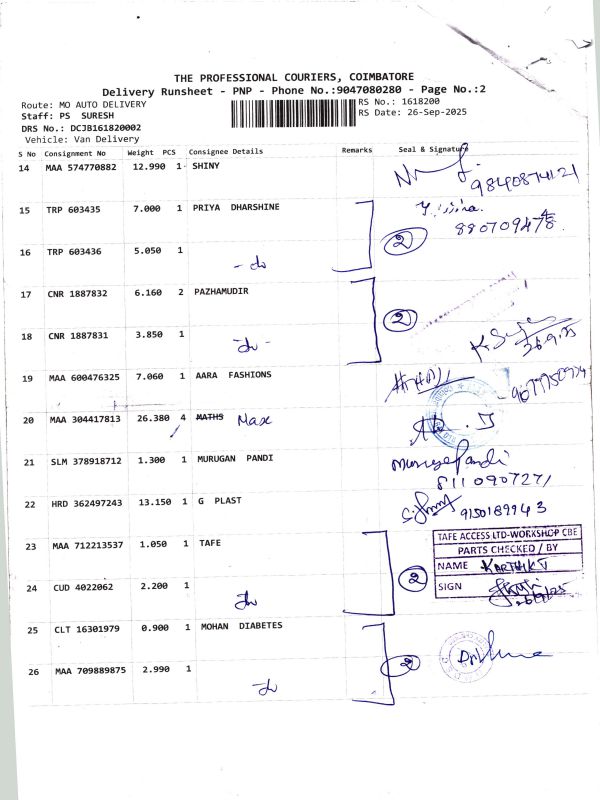 THE PROFESSIONAL COURIERS, COIMBATORE
Delivery Runsheet - PNP - Phone No.:9047080280 - Page No.:2
Route: MO AUTO DELIVERY
RS No.: 1618200
Staff: PS SURESH
RS Date: 26-Sep-2025
DRS No.: DCJB161820002
Vehicle: Van Delivery
S No Consignment No Weight PCS Consignee Details Remarks Seal & Signature
14 MAA 574770882 12.990 1 SHINY
9840874121
15 TRP 603435 7.000 1 PRIYA DHARSHINE
2
16 TRP 603436 5.050 1
- do
17 CNR 1887832 6.160 2 PAZHAMUDIR
2
18 CNR 1887831 3.850 1
- do -
19 MAA 600476325 7.060 1 AARA FASHIONS
20 MAA 304417813 26.380 4 MATHS Max
21 SLM 378918712 1.300 1 MURUGAN PANDI
Murugapandi
8110907271
22 HRD 362497243 13.150 1 G PLAST
9150189943
23 MAA 712213537 1.050 1 TAFE
2
TAFE ACCESS LTD-WORKSHOP CBE
PARTS CHECKED / BY
NAME KARTHIK T
SIGN
26/9/25
24 CUD 4022062 2.200 1
do
25 CLT 16301979 0.900 1 MOHAN DIABETES
2
26 MAA 709889875 2.990 1
- do